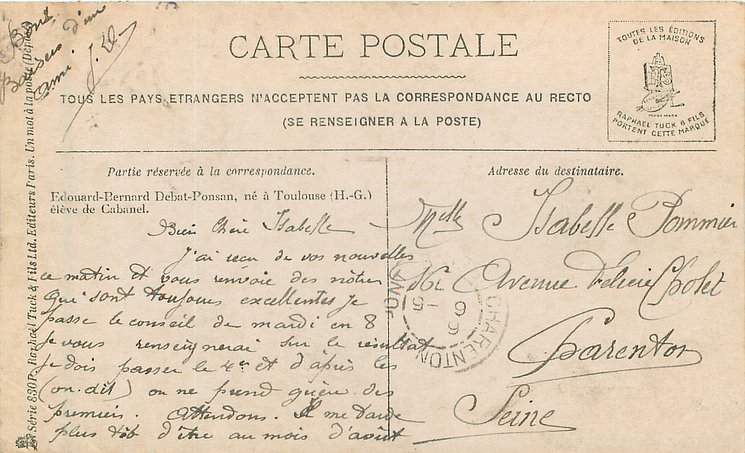 Bons
Baisers d'un
ami J. D.
CARTE POSTALE
TOUS LES PAYS ETRANGERS N'ACCEPTENT PAS LA CORRESPONDANCE AU RECTO
(SE RENSEIGNER A LA POSTE)
TOUTES LES ÉDITIONS
DE LA MAISON
RAPHAEL TUCK & FILS
PORTENT CETTE MARQUE
Partie réservée à la correspondance.
Edouard-Bernard Debat-Ponsan, né à Toulouse (H.-G.)
élève de Cabanel.
Bien Chère Isabelle
J'ai reçu de vos nouvelles
ce matin et vous renvoie des nôtres
qui sont toujours excellentes je
passe le conseil de mardi en 8
je vous renseignerai sur le résultat
je dois passer le 4e et d'après les
(on-dit) on ne prend guère des
premiers. Attendons. Il me tarde
plus tôt d'être au mois d'août
Adresse du destinataire.
Mlle Isabelle Pommier
16 Avenue Félicie Cholet
Charenton
Seine
CHARENTON
6 - 5
9
Série 830 P. Raphaël Tuck & Fils Ltd. Editeurs Paris. Un mot à la poste (Déposé)